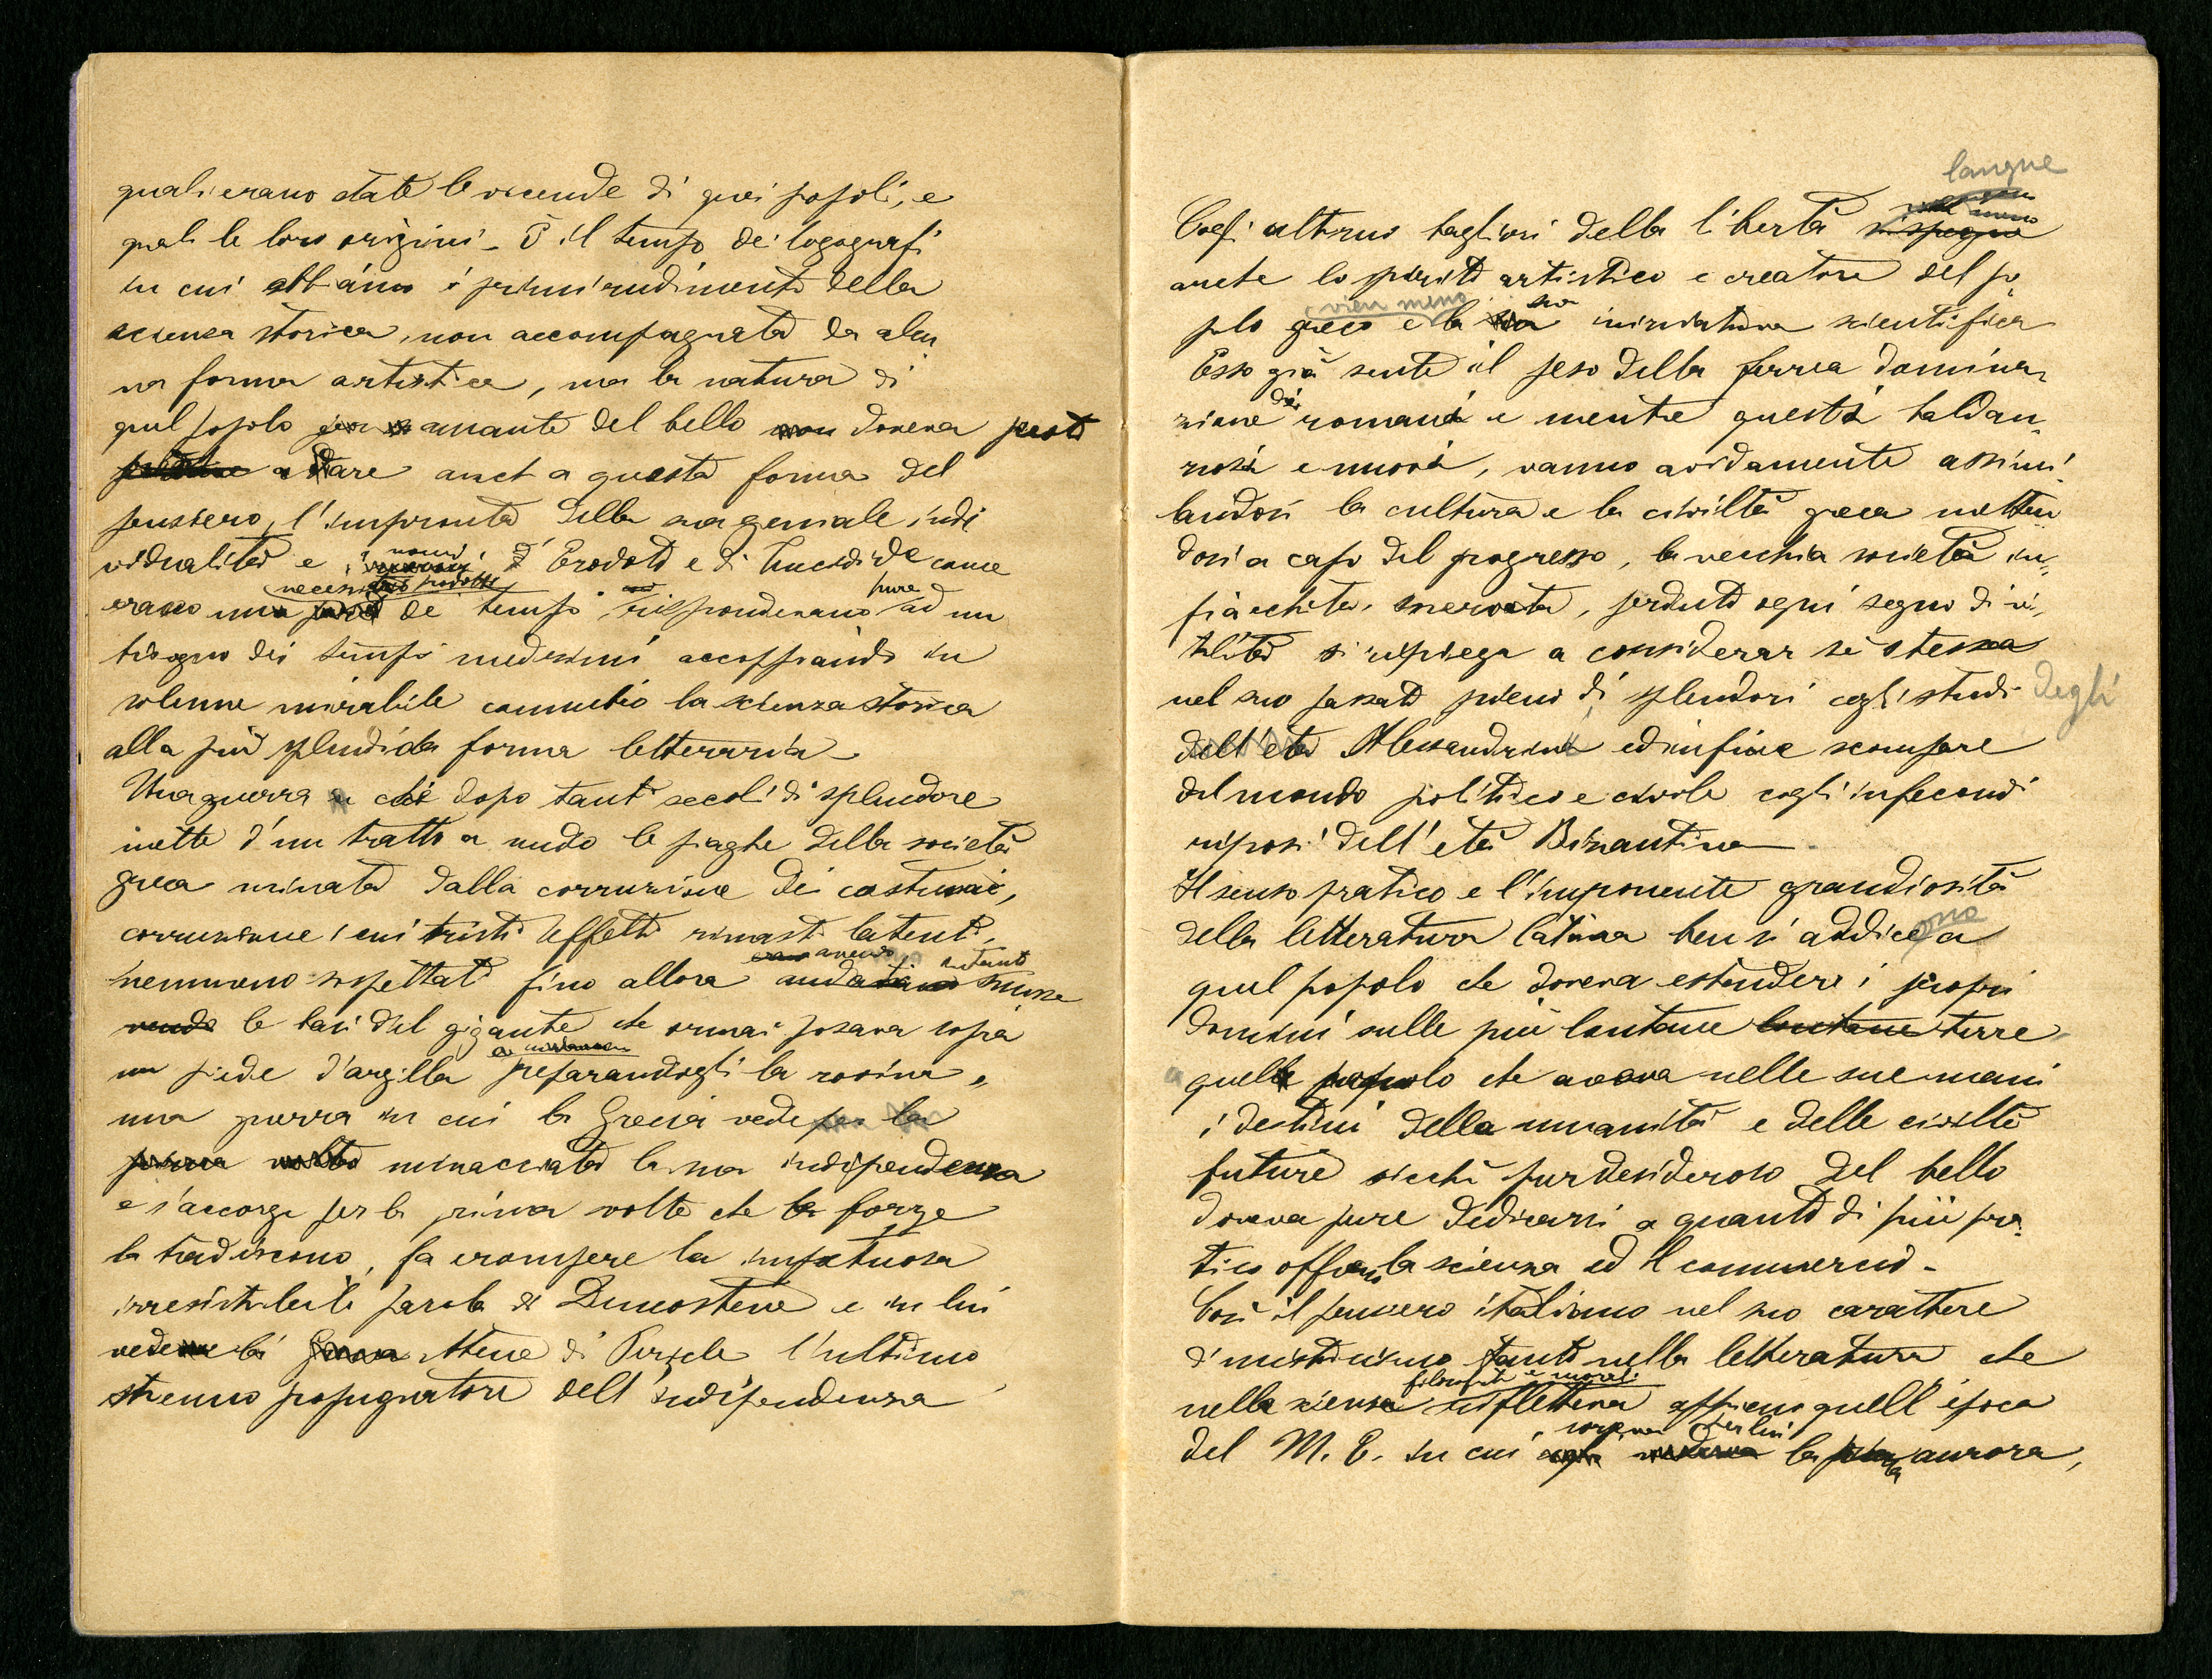 quali erano state le vicende di quei popoli, e
quali le loro origini – È il tempo dei logografi
in cui abbiamo i primi rudimenti della
scienza storica, non accompagnata da alcu
na forma artistica, ma la natura di
quel popolo amante del bello non doveva presto
a dare anch a questa forma del
pensiero, l'impronta della sua geniale indi
vidualità e i nomi d' Erodoto e di Tucidide come
necessario prodotto pure
erano un de' tempi rispondevano ad un
bisogno dei tempi medesimi accoppiando in
solenne mirabile connubio la scienza storica
alla più splendida forma letteraria.
Una guerra che dopo tanti secoli di splendore
mette d'un tratto a nudo le piaghe della società
greca minata dalla corruzione dei costumi,
corruzione i cui tristi effetti rimasti latenti,
avevano intanto
nemmeno sospettati fino allora smosse
le basi del gigante che ormai posava sopra
un piede d'argilla preparandogli la rovina,
una guerra in cui la Grecia vede per la
prima volta minacciata la sua indipendenza
e s'accorge per la prima volta che le forze
la tradiscono, fa erompere la impetuosa
irresistibile parola di Demostene e in lui
vede la Atene di Pericle l'ultimo
strenuo propugnatore dell'indipendenza
langue
vien meno
Cogli ultimi bagliori della libertà si spegne
anche lo spirito artistico e creatore del po
vien meno sua
polo greco e la iniziativa scientifica
Esso già sente il peso della ferrea domina,
zione dei romani e mentre questi baldan,
zosi e nuovi, vanno avidamente assimi
landosi la cultura e la civiltà greca metten
dosi a capo del progresso, la vecchia società in,
fiacchita, snervata, perduto ogni segno di vi,
talità si ripiega a considerar sè stessa
nel suo passato pieno di splendori cogli studi degli
dell'età Alessandrina ed infine scompare
dal mondo politico e civile cogli infecondi
riposi dell'età Bizantina.
Il senso pratico e l'imponente grandiosità
della letteratura latina ben si addicono a
quel popolo che doveva estendere i propri
dominî sulle più lontane lontane terre
a quel popolo che aveva nelle sue mani
i destini della umanità e delle civiltà
future sicchè pur desideroso del bello
doveva pure dedicarsi a quanto di più pra
tico offrono la scienza ed il commercio –
Così il pensiero italiano nel suo carattere
di misticismo tanto nella letteratura che
filosofiche e morali
nella scienza rifletteva appieno quell'epoca
sorgeva per lui
del M. E. in cui la aurora,